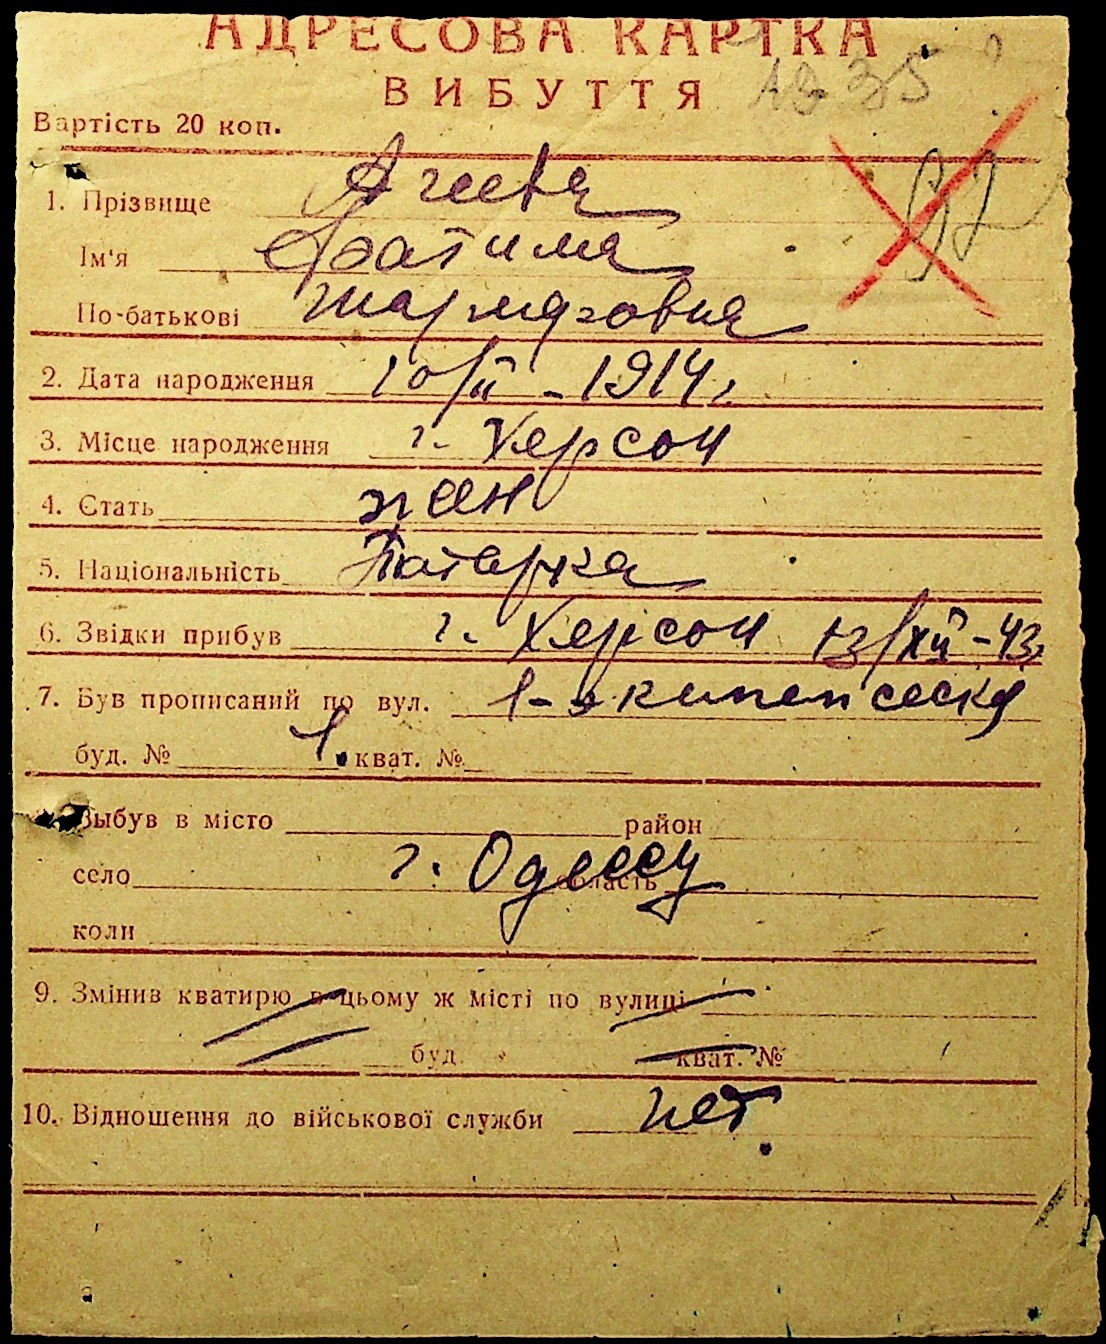 АДРЕСОВА КАРТКА
ВИБУТТЯ
Вартість 20 коп.
1. Прізвище Агеева
Ім'я Фатима
По-батькові
2. Дата народження 10/II - 1914 г.
3. Місце народження г. Херсон
4. Стать жен
5. Національність Татарка
6. Звідки прибув г. Херсон 13/XII - 43 г.
7. Був прописаний по вул. 1-
буд. № 1. кват. №
Выбув в місто район
село г. Одессу область
коли
9. Змінив кватирю в цьому ж місті по вулиці
буд. кват. №
10. Відношення до військової служби нет.